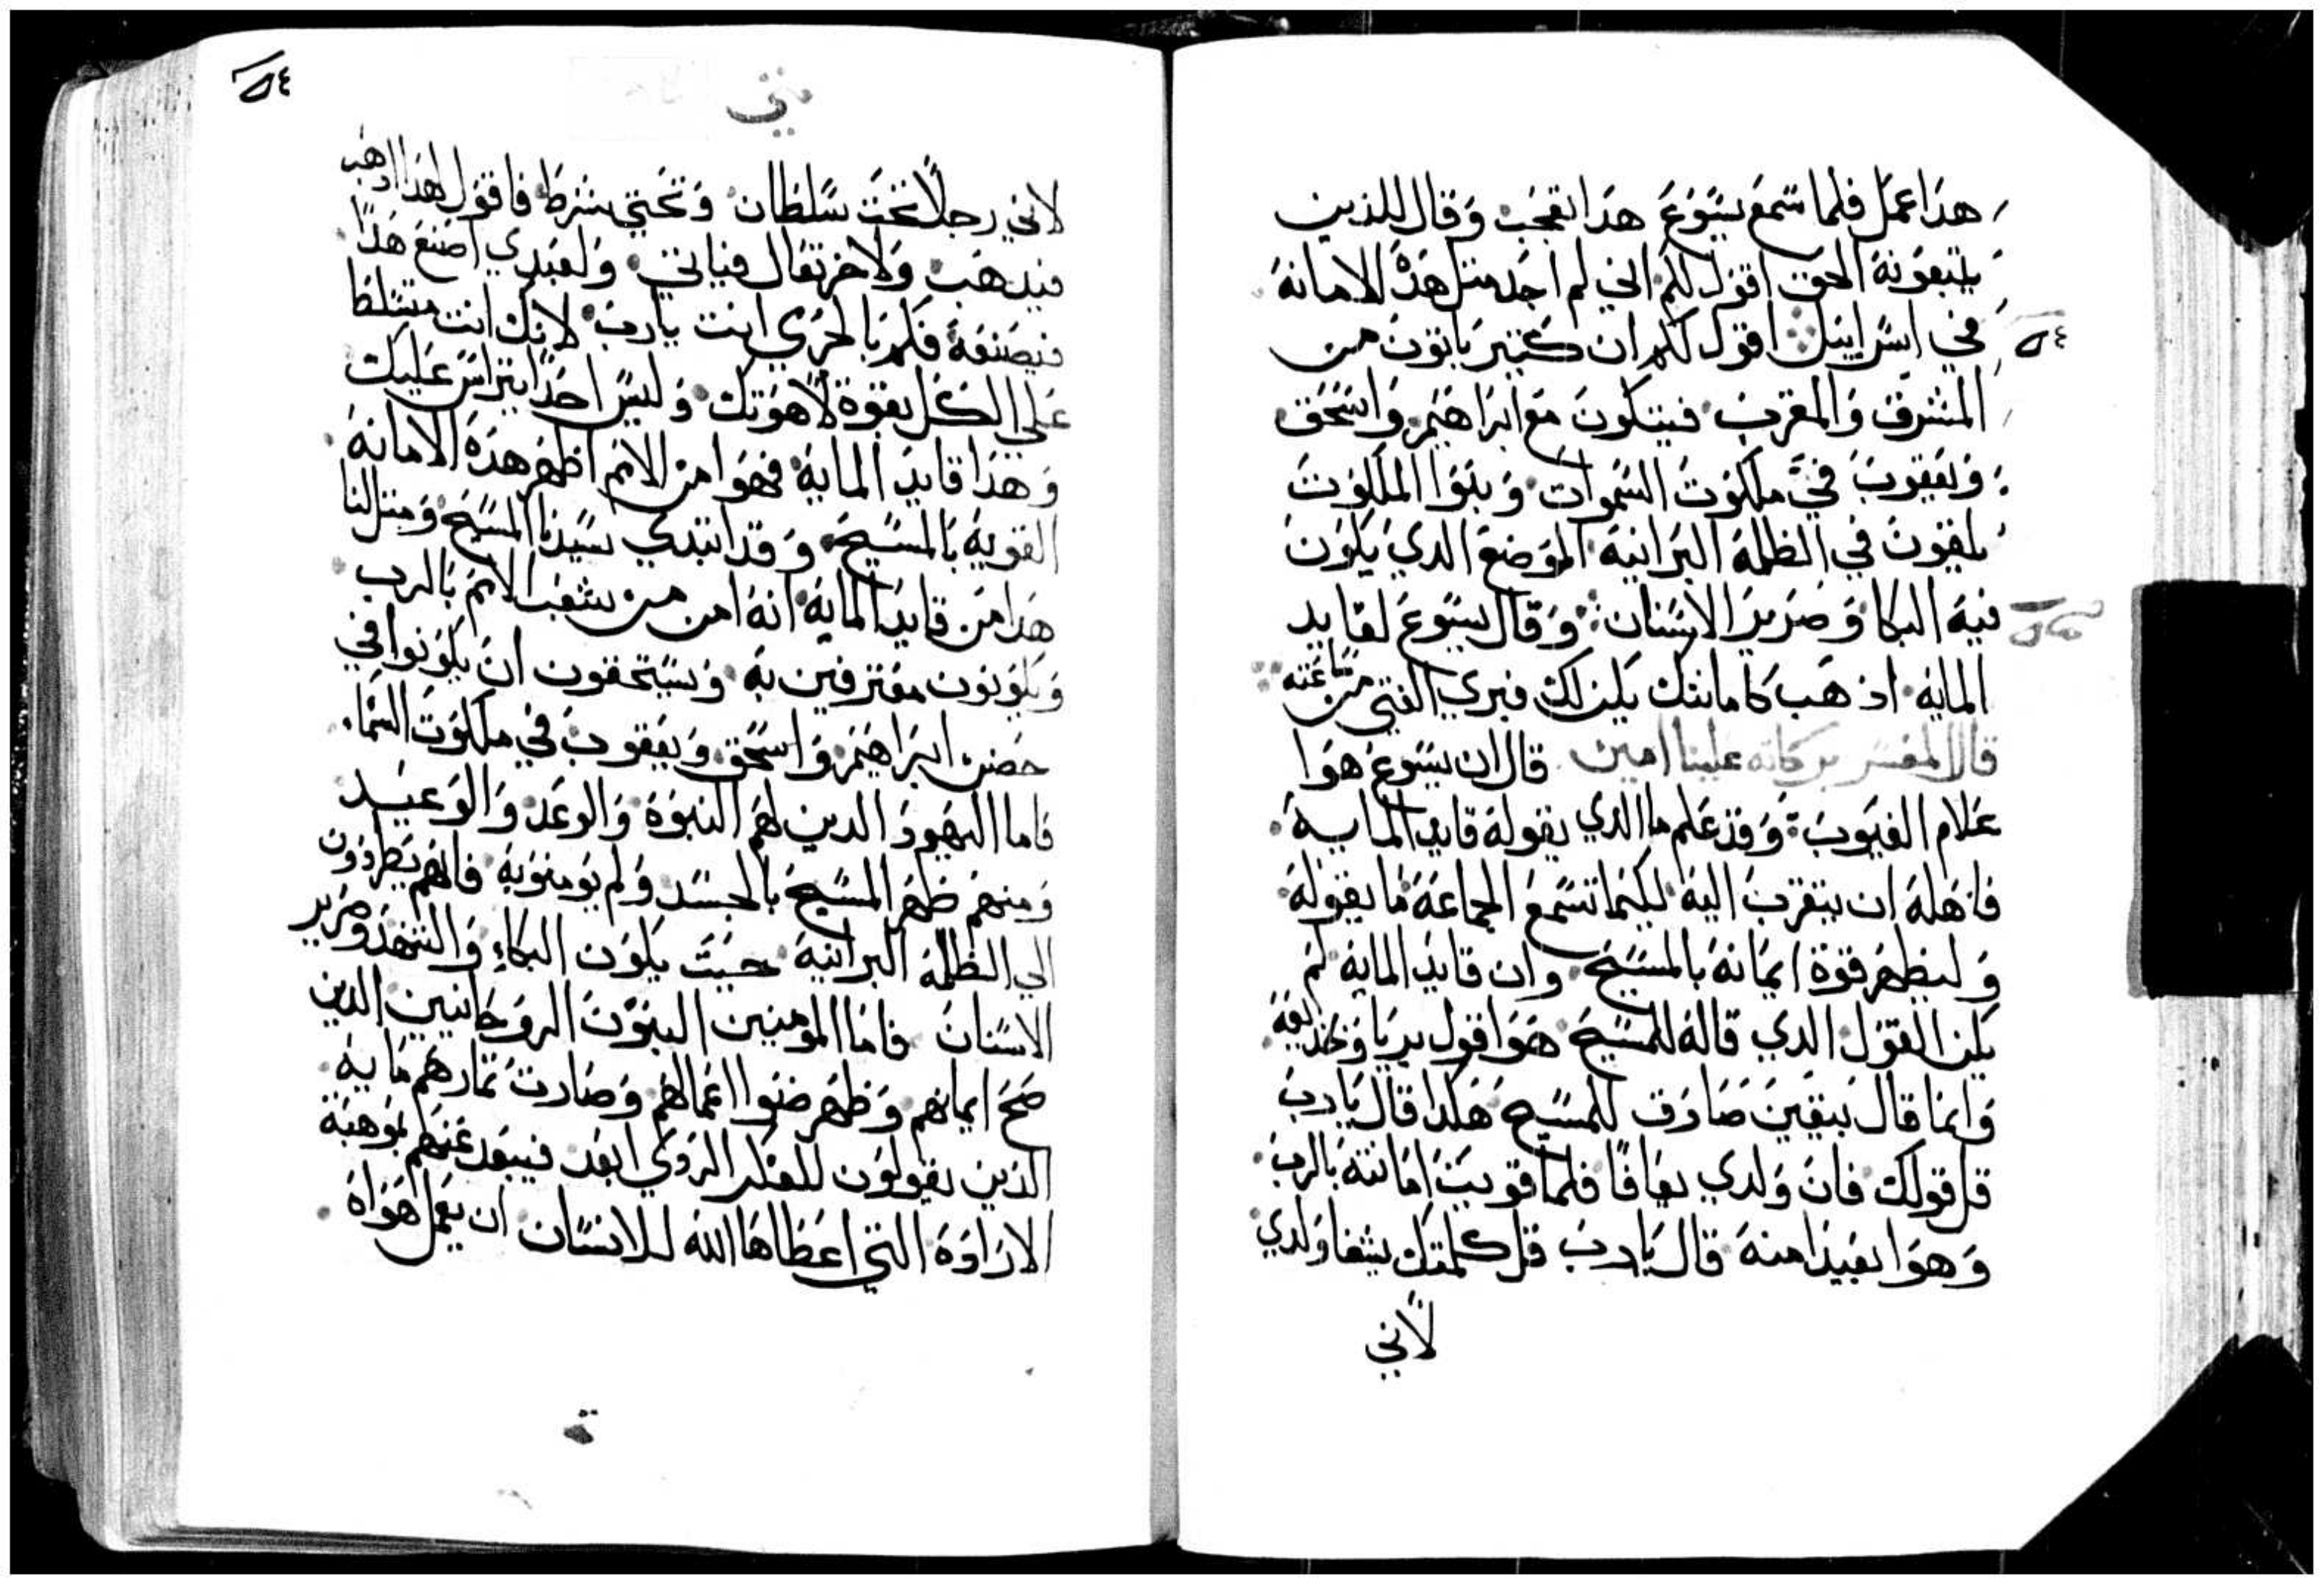 هذا عمل فلما سمع يسوع هذا تعجب وقال للذين
يتبعونه الحق اقول لكم اني لم اجد مثل هذه الامانه
في اسراييل اقول لكم ان كتير ياتون من
المشرق والمغرب فيتكون مع ابراهيم واسحق
ويعقوب في ملكوت السموات وبنوا الملكوت
يلقون في الظلمة البرانية الموضع الدي يكون
فيه البكا وصرير الاسنان وقال يسوع لقايد
المايه اذهب كامانتك يكن لك فبري الفتي من ساعته
قال المفسر بركاته علينا امين قال ان يسوع هوا
علام الغيوب وقد علم ما الدي يقوله قايد المايه
فاهله ان يتقرب اليه لكيما تسمع الجماعة ما يقوله
وليظهر قوة ايمانه بالمسيح وان قايد المايه لم
يكن القول الدي قاله للمسيح هوا قول بريا وخديعة
وانما قال بيقين صادق للمسيح هكدا قال يارب
قل قولك فان ولدي يعافا فلما قويت امانته بالرب
وهوا بعيدا منه قال يارب قل كلمتك يشفا ولدي
لاني
٥٤
متي
٥٤
لاني رجلا تحت سلطان وتحتي شرط فاقول لهدا ادهب
فيدهب ولاخر تعال فياتي ولعبدي اصنع هدا
فيصنعه فكم بالحري انت يارب لانك انت متسلطا
علي الكل بقوة لاهوتك وليس احدا يتراس عليك
وهدا قايد المايه فهوا من الامم اظهر هده الامانه
القويه بالمسيح وقد ابتدي سيدنا المسيح ومثل لنا
هدا من قايد المايه انه امن من شعب الامم بالرب
ويكونون معترفين به ويستحقون ان يكونوا في
حضن ابراهيم واسحق ويعقوب في ملكوت السماء
فاما اليهود الدين لهم النبوة والوعد والوعيد
ومنهم ظهر المسيح بالجسد ولم يومنو به فانهم يطردون
الي الظلمة البرانية حيت يكون البكاء والتنهد وصرير
الاسنان فاما المومنين البنون الروحانيين الدين
صح ايمانهم وظهر ضنوا اعمالهم وصارت تمارهم مايه
الذين يقولون للفكر الردي ابعد فيبعد عنهم بموهبة
الاراده التي اعطاها الله للانسان ان يعمل هواه